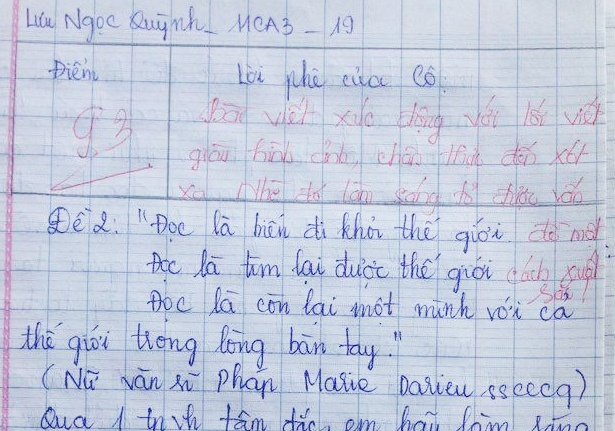 Lưu Ngọc Quỳnh - 11CA3 - 19
Điểm
Lời phê của Cô
9,3
Bài viết xúc động với lối viết
giàu hình ảnh, chân thực đến xót
xa. Nhờ đó làm sáng tỏ được vấn
đề một
cách xuất
sắc
Đề 2: "Đọc là biến đi khỏi thế giới.
Đọc là tìm lại được thế giới
Đọc là còn lại một mình với cả
thế giới trong lòng bàn tay."
(Nữ văn sĩ Pháp Marie Darieu sseccq)
Qua 1 tp vh tâm đắc, em hãy làm sáng